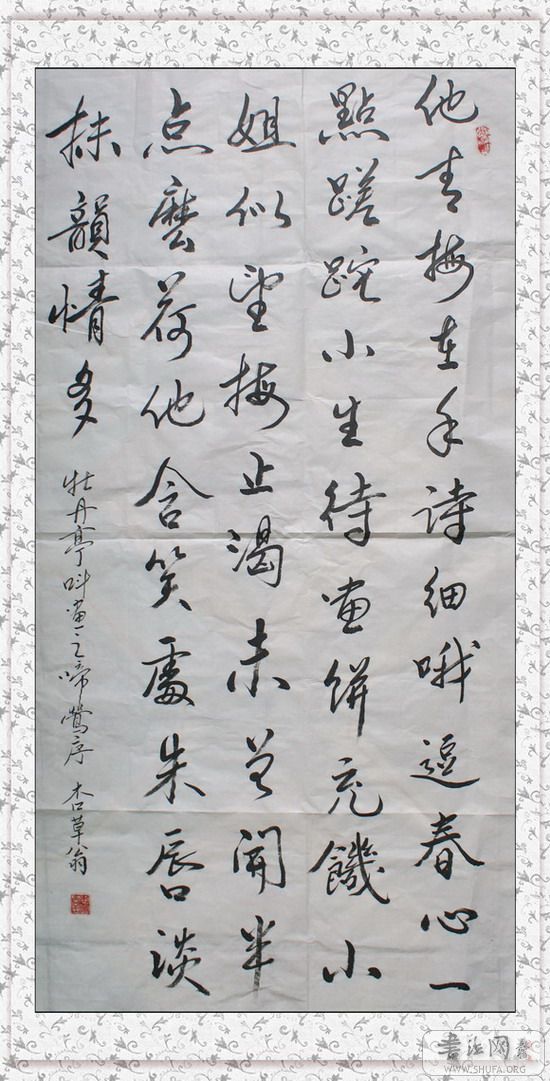 他青梅在手诗细哦逗春心一
點蹉跎小生待畫餅充饑小
姐似望梅止渴未曾開半
点麼荷他含笑處朱唇淡
抹韻情多
牡丹亭叫畫之啼鶯序 杏草翁
书法网
WWW.SHUFA.ORG